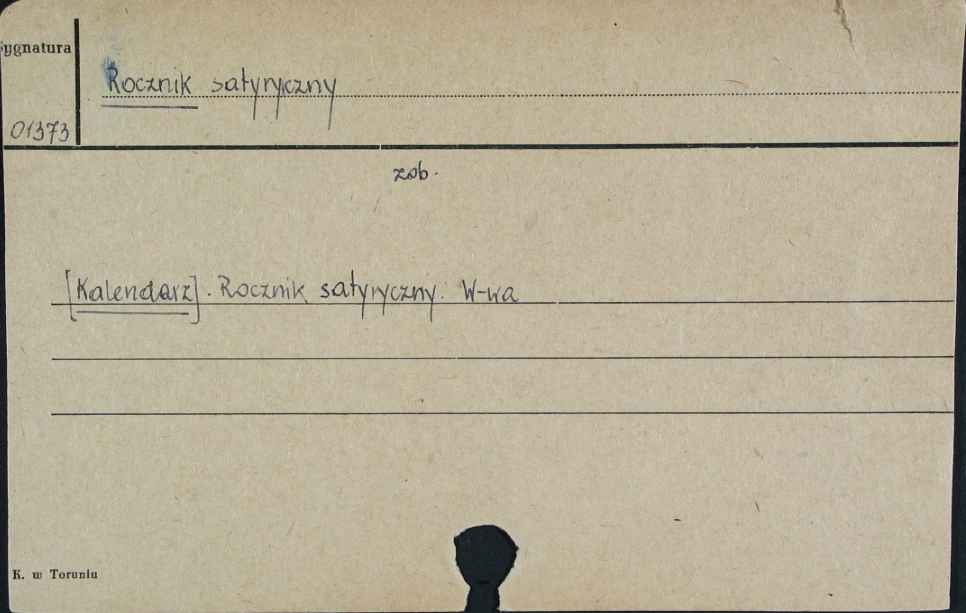 Sygnatura
Rocznik satyryczny
01373
zob.
[Kalendarz]. Rocznik satyryczny. W-wa
K. w Toruniu